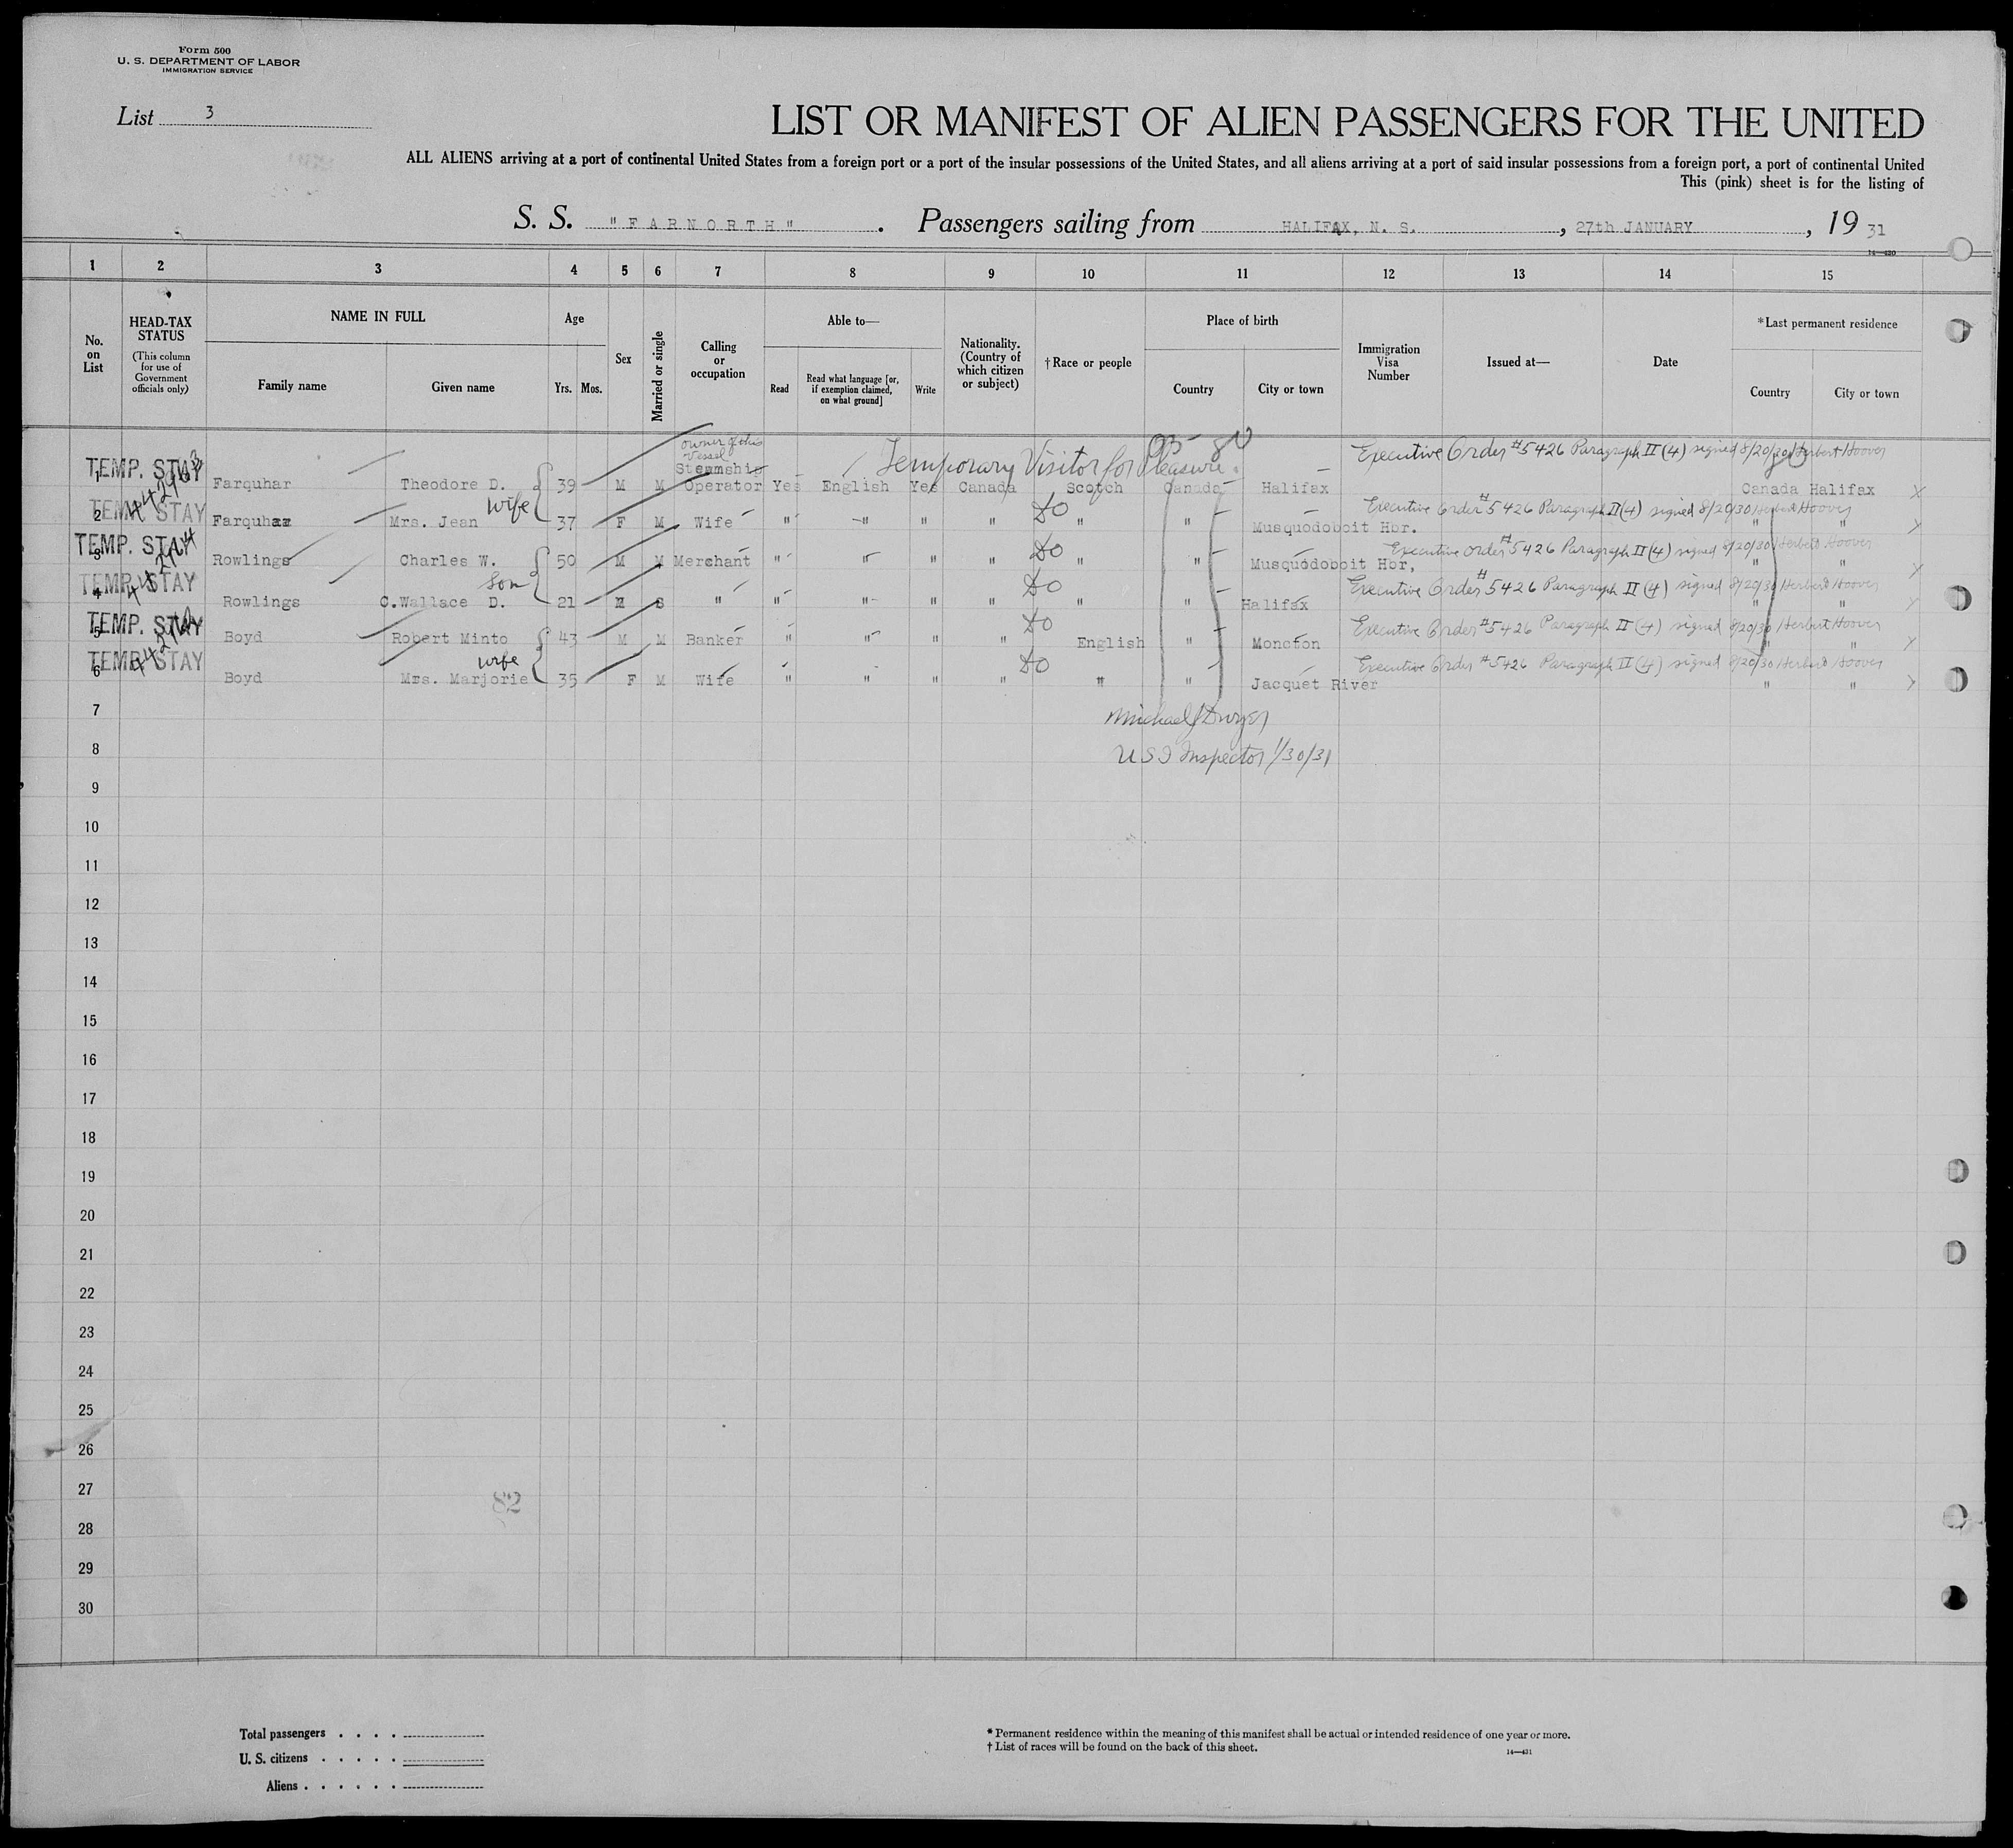 Form 500
U. S. DEPARTMENT OF LABOR
IMMIGRATION SERVICE
List 3
LIST OR MANIFEST OF ALIEN PASSENGERS FOR THE UNITED
ALL ALIENS arriving at a port of continental United States from a foreign port or a port of the insular possessions of the United States, and all aliens arriving at a port of said insular possessions from a foreign port, a port of continental United
This (pink) sheet is for the listing of
S. S. "FARNORTH" . Passengers sailing from HALIFAX, N. S. , 27th JANUARY , 19 31
14—430
1 2 3 4 5 6 7 8 9 10 11 12 13 14 15
No. on List
HEAD-TAX STATUS
(This column for use of Government officials only)
NAME IN FULL
Family name Given name
Age
Yrs. Mos.
Sex
Married or single
Calling or occupation
Able to—
Read
Read what language [or, if exemption claimed, on what ground]
Write
Nationality. (Country of which citizen or subject)
† Race or people
Place of birth
Country City or town
Immigration Visa Number
Issued at—
Date
*Last permanent residence
Country City or town
owner of this vessel
Temporary Visitor for Pleasure
Executive Order #5426 Paragraph II (4) signed 8/20/30 Herbert Hoover
1 TEMP. STAY Farquhar Theodore D. 39 M M Steamship Operator Yes English Yes Canada Scotch Canada Halifax Canada Halifax X
wife
Executive Order #5426 Paragraph II (4) signed 8/20/30 Herbert Hoover
2 TEMP. STAY Farquhar Mrs. Jean 37 F M Wife " " " " do " " Musquodoboit Hbr. " " X
Executive Order #5426 Paragraph II (4) signed 8/20/30 Herbert Hoover
3 TEMP. STAY Rowlings Charles W. 50 M M Merchant " " " " do " " Musquodoboit Hbr, " " X
son
Executive Order #5426 Paragraph II (4) signed 8/20/30 Herbert Hoover
4 TEMP. STAY Rowlings C.Wallace D. 21 M S " " " " " do " " Halifax " " X
Executive Order #5426 Paragraph II (4) signed 8/20/30 Herbert Hoover
5 TEMP. STAY Boyd Robert Minto 43 M M Banker " " " " do English " Moncton " " X
wife
Executive Order #5426 Paragraph II (4) signed 8/20/30 Herbert Hoover
6 TEMP. STAY Boyd Mrs. Marjorie 35 F M Wife " " " " do " " Jacquet River " " X
7
8 U S I Inspector 1/30/31
9
10
11
12
13
14
15
16
17
18
19
20
21
22
23
24
25
26
27
82
28
29
30
Total passengers . . . .
U. S. citizens . . . . .
Aliens . . . . . .
* Permanent residence within the meaning of this manifest shall be actual or intended residence of one year or more.
† List of races will be found on the back of this sheet.
14—431